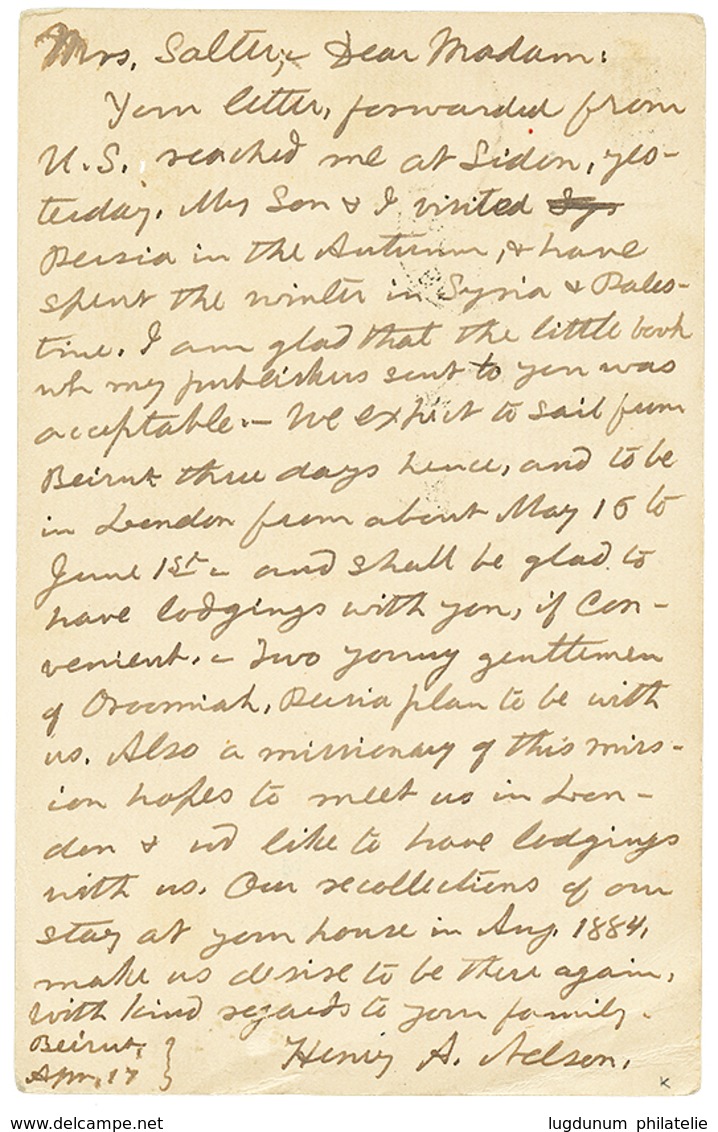 Mrs. Salter, – Dear Madam:
Your letter, forwarded from
U.S. reached me at Sidon, yes-
terday. My Son & I visited Sy
Persia in the Autumn, & have
spent the winter in Syria & Pales-
tine. I am glad that the little book
wh my publishers sent to you was
acceptable. – We expect to sail from
Beirut three days hence, and to be
in London from about May 16 to
June 1st – and shall be glad to
have lodgings with you, if Con-
venient. – Two young gentlemen
of Oroomiah, Persia plan to be with
us. Also a missionary of this miss-
ion hopes to meet us in Lon-
don & wd like to have lodgings
with us. Our recollections of our
stay at your house in Aug. 1884,
make us desire to be there again,
with kind regards to your family.
Beirut,
Apr. 17
Henry A. Nelson.
K
www.delcampe.net
lugdunum philatelie